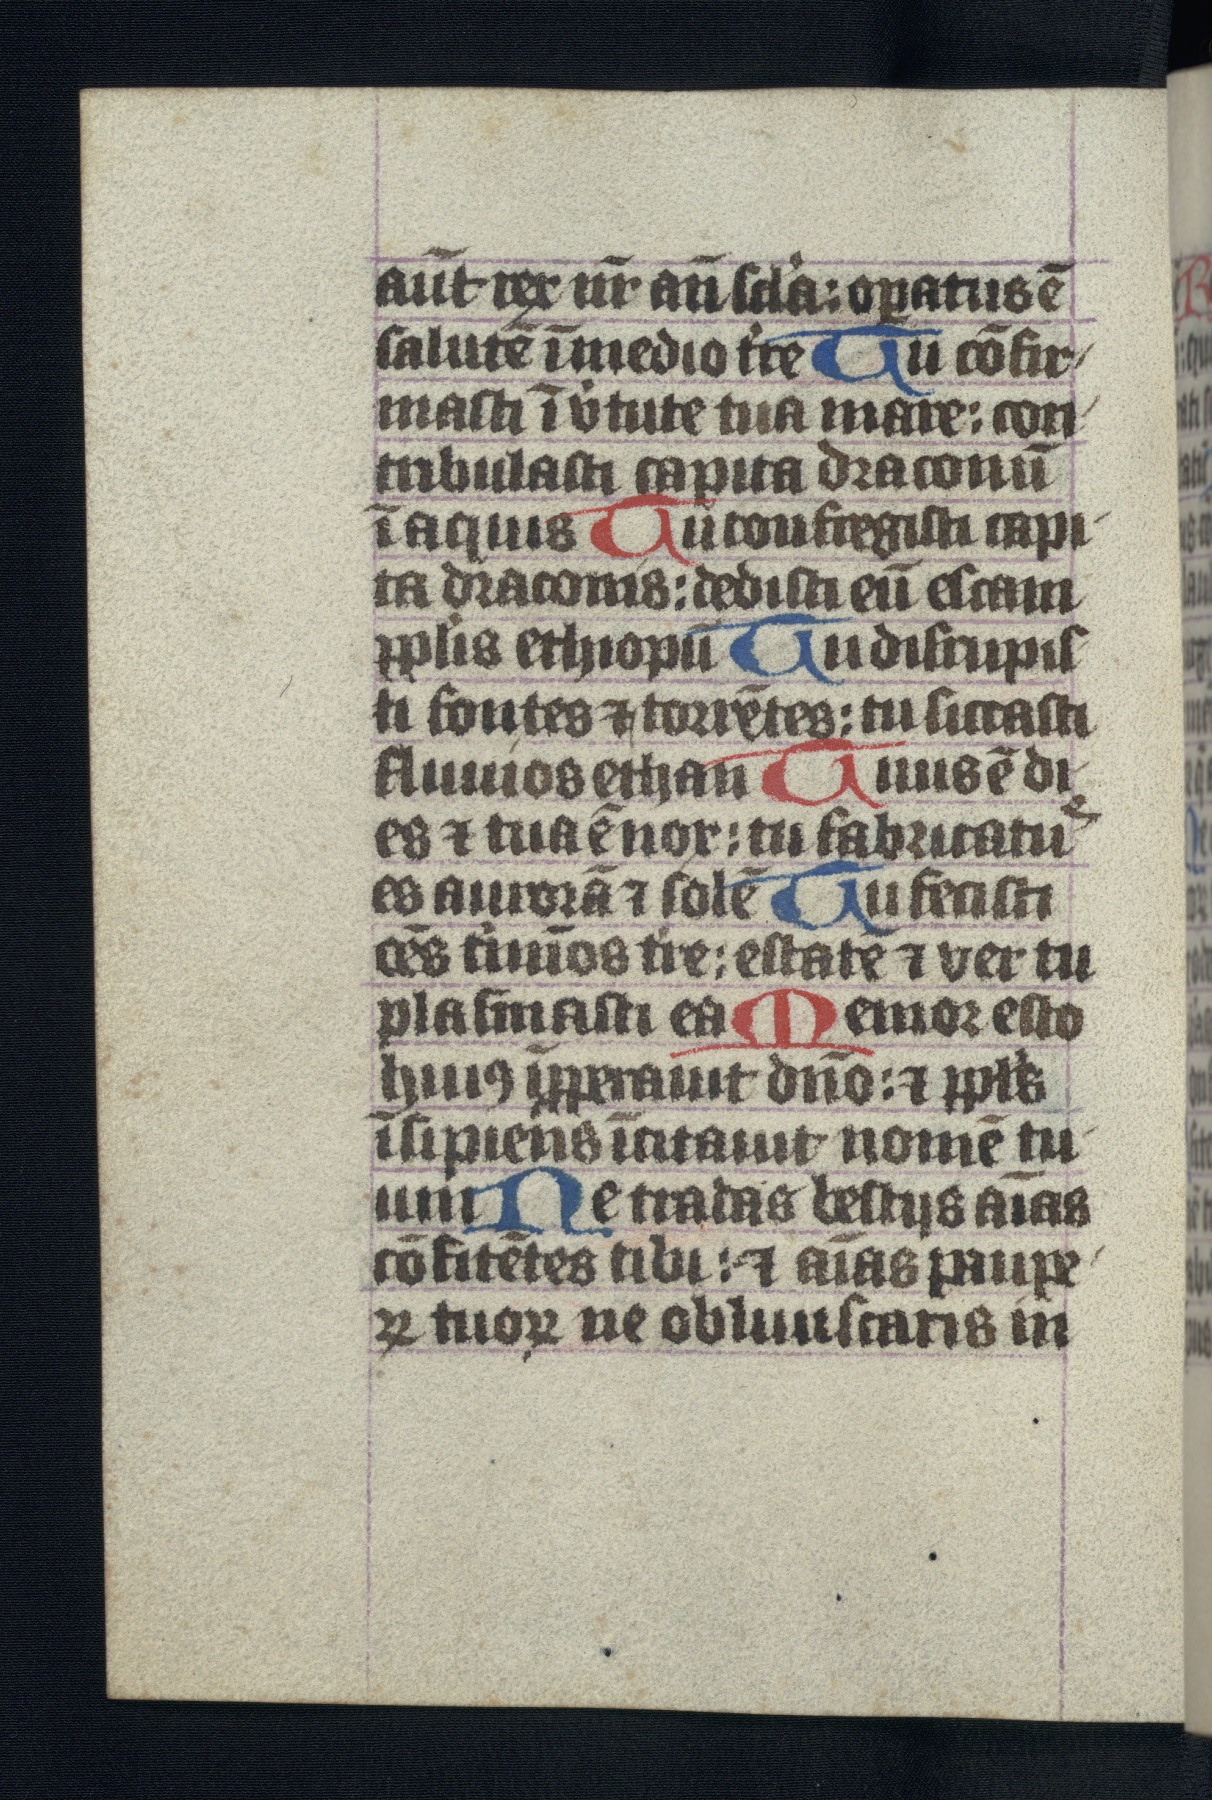 aūt rex nr̄ an̄ scl̓a: oꝑatus ē
salutē ī medio tr̓re Tu cōfir-
masti ī v̓tute tua mare: con-
tribulasti capita draconū
ī aquis Tu confregisti capi-
ta draconis: dedisti eū escam
ppl̓is ethiopū Tu disrupis
ti fontes ⁊ torrētes: tu siccasti
fluuios ethan Tuus ē di-
es ⁊ tua ē nox: tu fabricatu
es aurorā ⁊ solē Tu fecisti
oēs t̓mīos tr̓re: estatē ⁊ ver tu
plasmasti ea Memor esto
huiꝰ īpperauit dn̄o: ⁊ ppl̓s
īsipiens īcitauit nomē tu-
um Ne tradas bestijs aīas
cōfitētes tibi: ⁊ aīas paupe-
ꝝ tuoꝝ ne obliuiscaris in